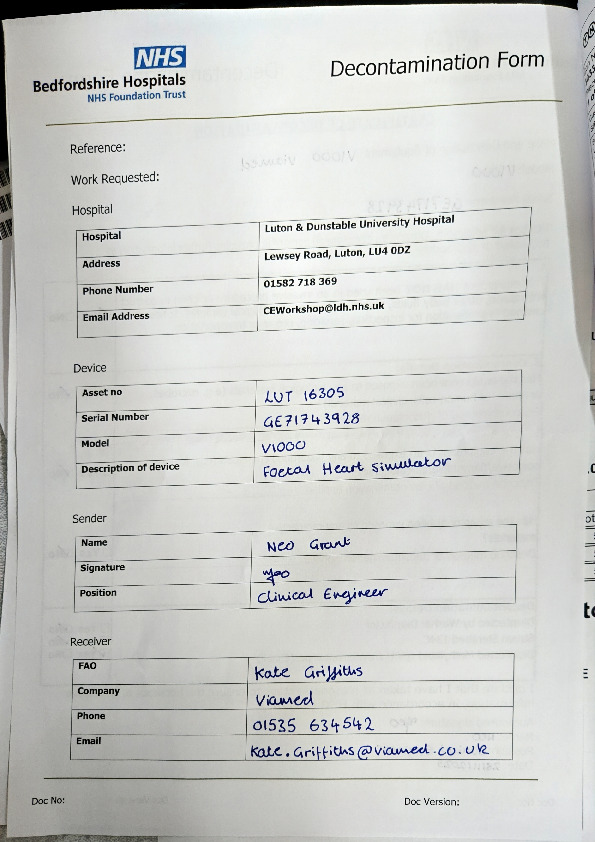 NHS
Bedfordshire Hospitals
NHS Foundation Trust
Decontamination Form
Reference:
Work Requested:
Hospital
Hospital Luton & Dunstable University Hospital
Address Lewsey Road, Luton, LU4 0DZ
Phone Number 01582 718 369
Email Address CEWorkshop@ldh.nhs.uk
Device
Asset no LUT 16305
Serial Number GE71743928
Model V1000
Description of device Foetal Heart Simulator
Sender
Name Neo Grant
Signature
Position Clinical Engineer
Receiver
FAO Kate Griffiths
Company Viamed
Phone 01535 634542
Email Kate.Griffiths@viamed.co.uk
Doc No: Doc Version: